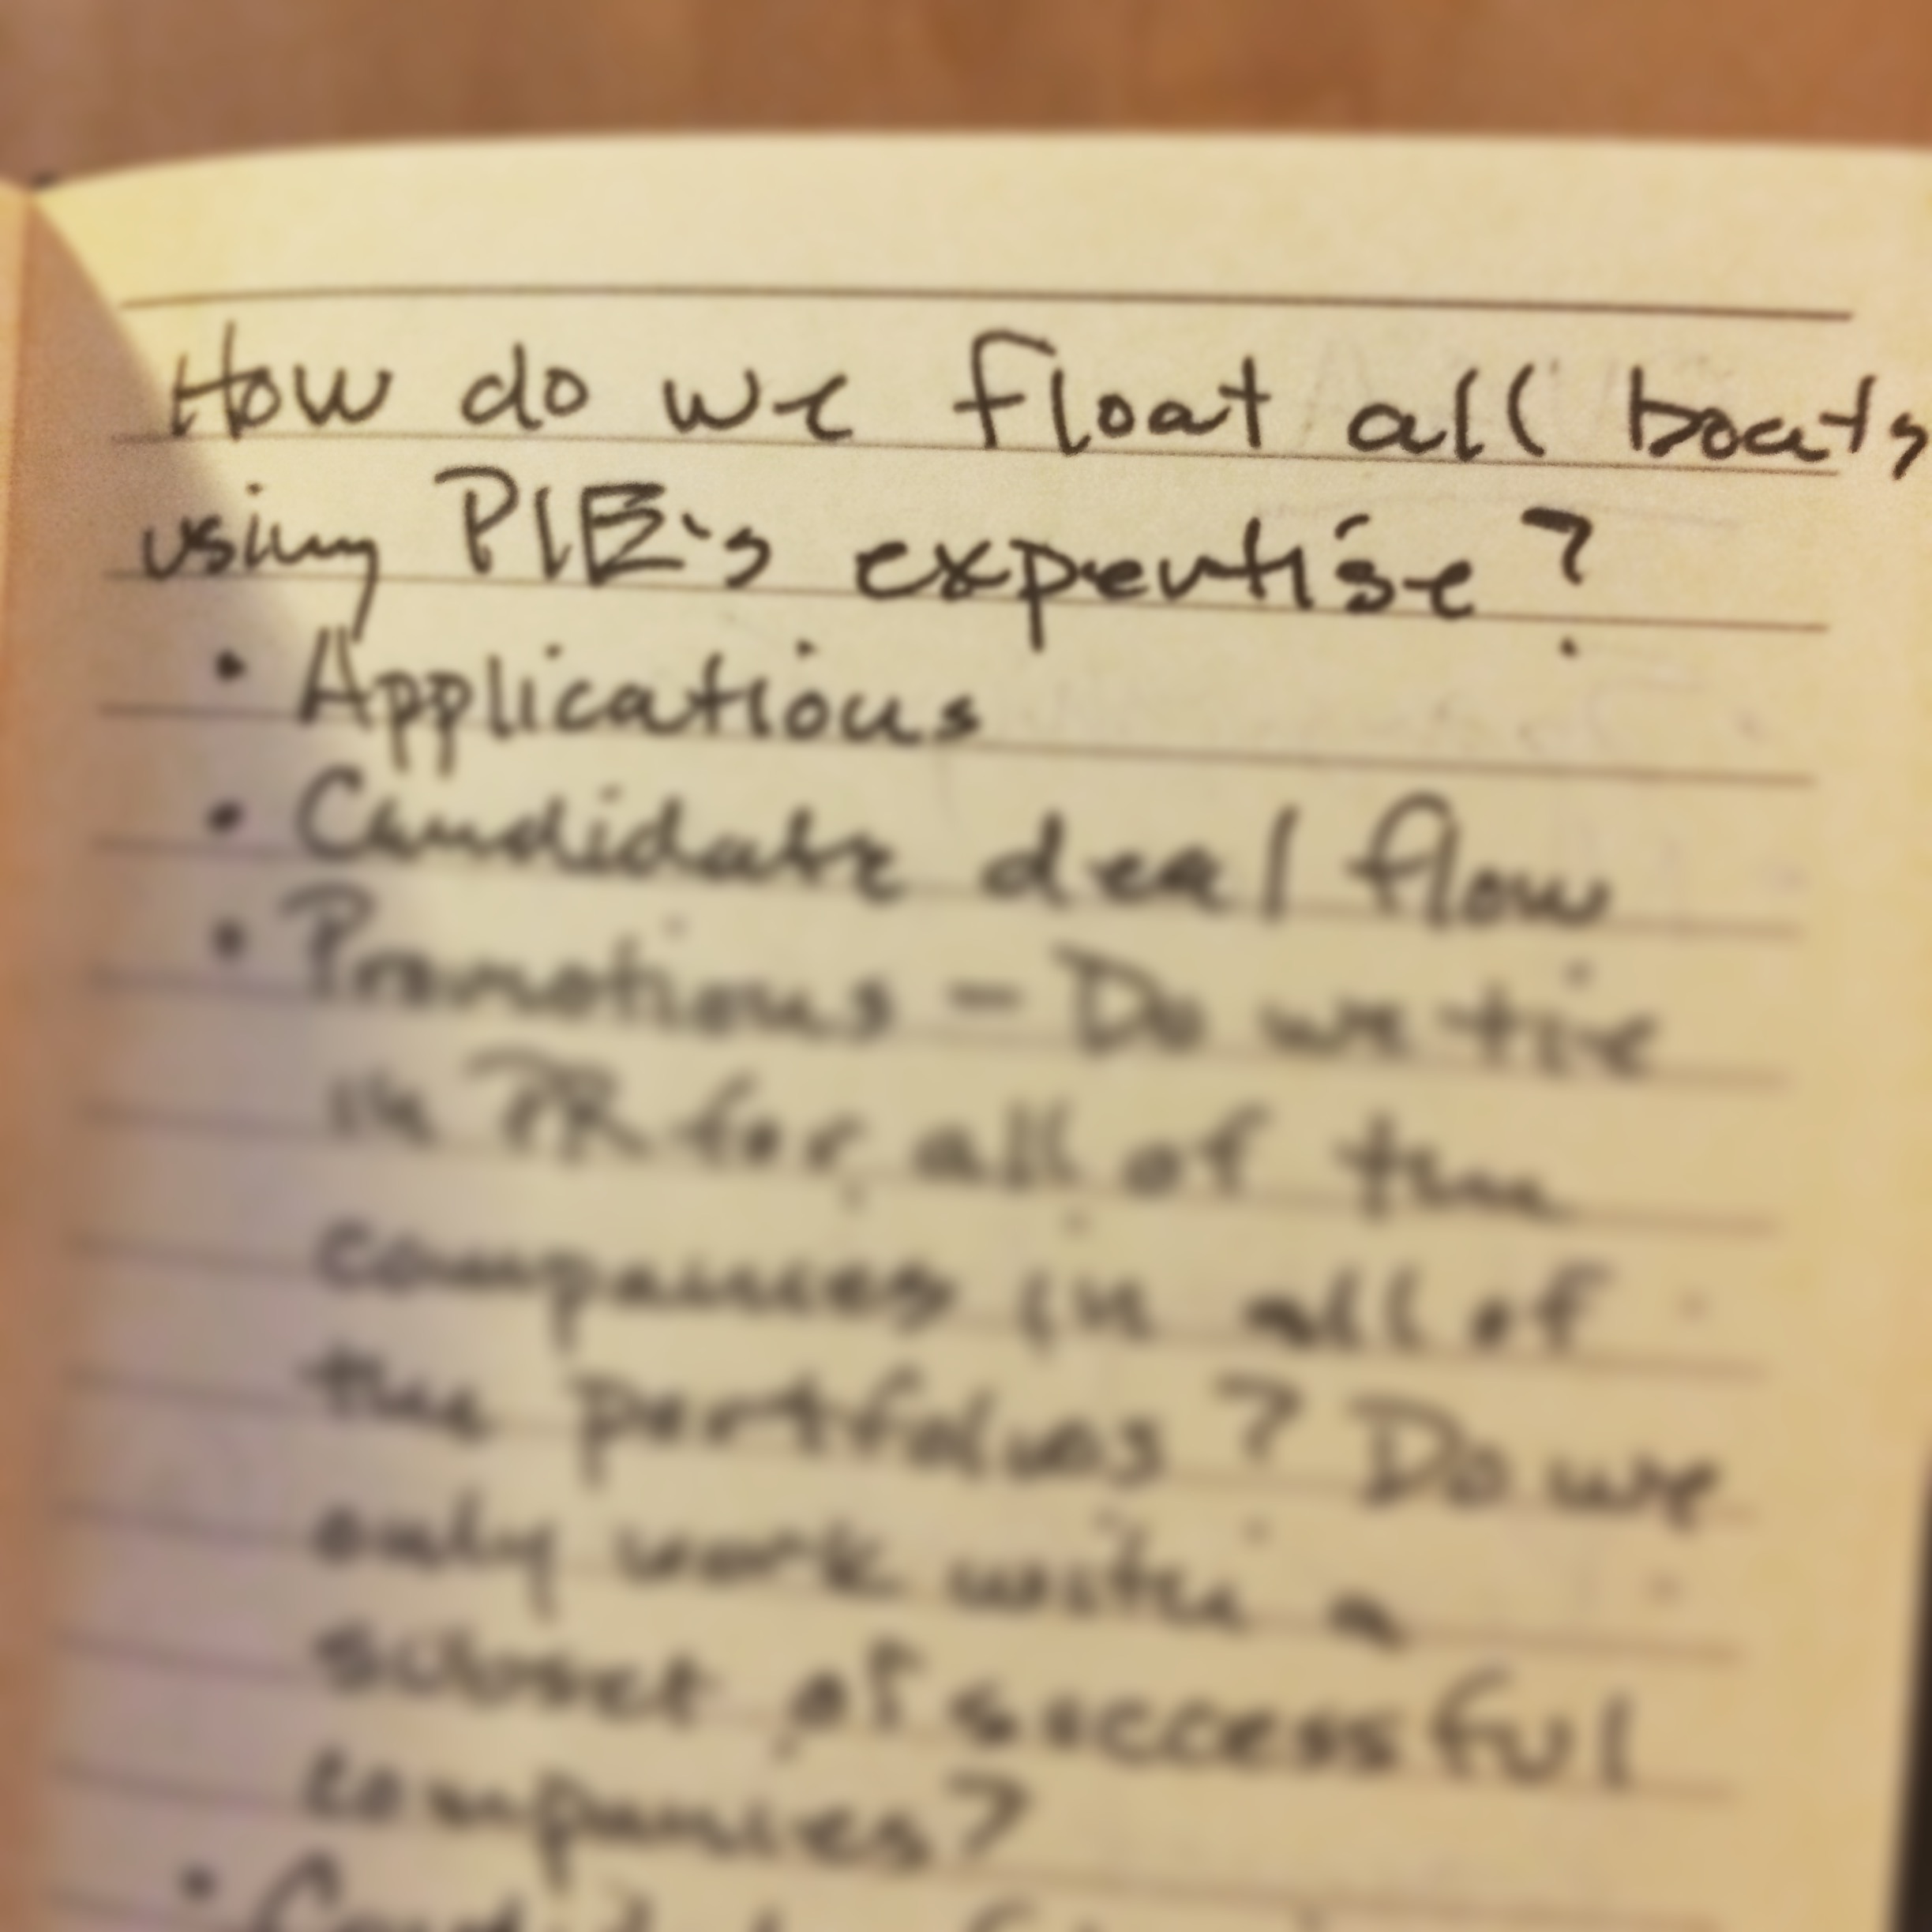 How do we float all boats
using PIE's expertise?
• Applications
• Candidate deal flow
• Promotions - Do we tie
in PR for all of the
companies in all of
the portfolios? Do we
only work with a
subset of successful
companies?